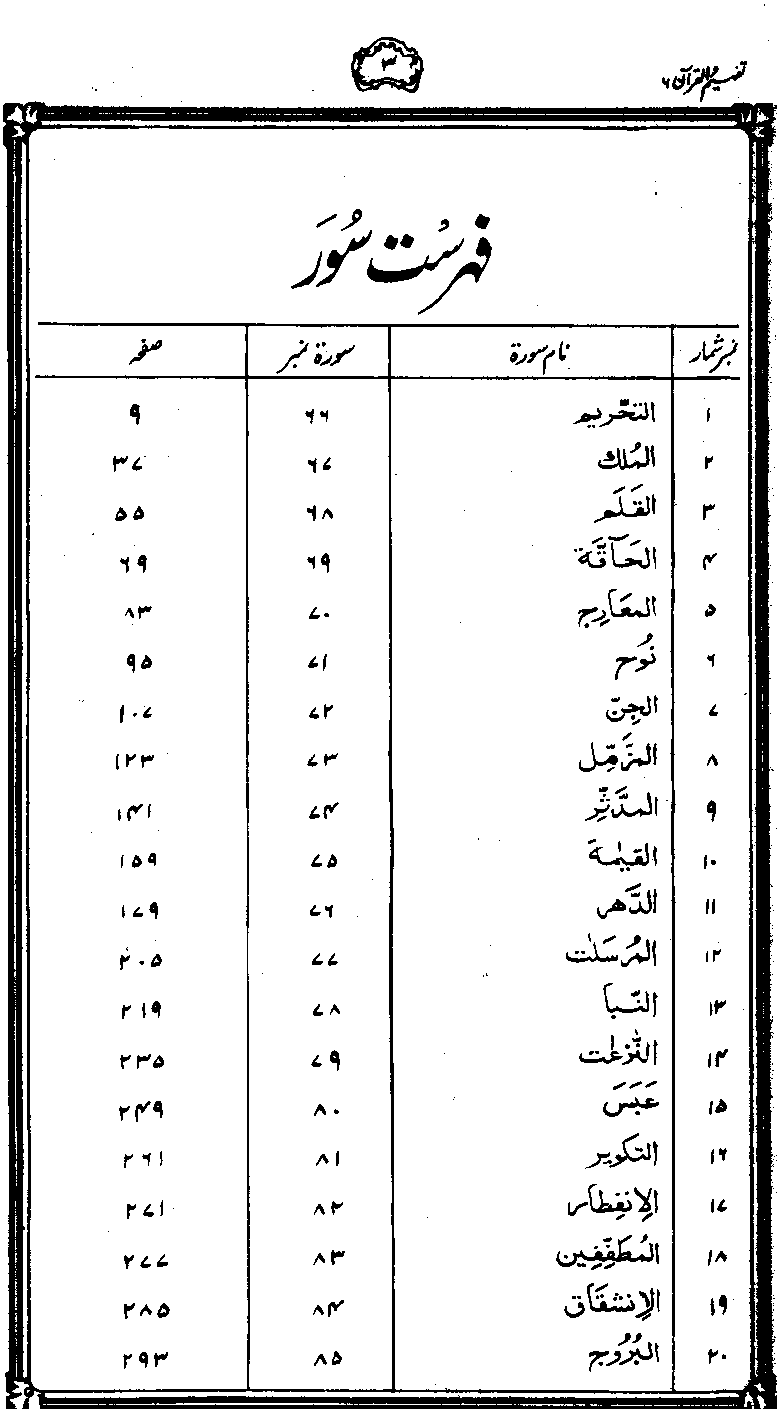 تفہیم القرآن ۶
۳
فہرست سُوَر
نمبر شمار نام سورۃ سورۃ نمبر صفحہ
۱ التحّریم ۶۶ ۹
۲ المُلك ۶۷ ۳۷
۳ القَلَم ۶۸ ۵۵
۴ الحَآقَّة ۶۹ ۶۹
۵ المعَارِج ۷۰ ۸۳
۶ نُوح ۷۱ ۹۵
۷ الجِنّ ۷۲ ۱۰۷
۸ المزَّمِّل ۷۳ ۱۲۳
۹ المدَّثِّر ۷۴ ۱۴۱
۱۰ القیٰمة ۷۵ ۱۵۹
۱۱ الدَّهر ۷۶ ۱۷۹
۱۲ المُرسَلٰت ۷۷ ۲۰۵
۱۳ النّبا ۷۸ ۲۱۹
۱۴ النّٰزعٰت ۷۹ ۲۳۵
۱۵ عَبَسَ ۸۰ ۲۴۹
۱۶ التکویر ۸۱ ۲۶۱
۱۷ الاِنفِطار ۸۲ ۲۷۱
۱۸ المُطَفِّفِین ۸۳ ۲۷۷
۱۹ الاِنشقَاق ۸۴ ۲۸۵
۲۰ البُرُوج ۸۵ ۲۹۳